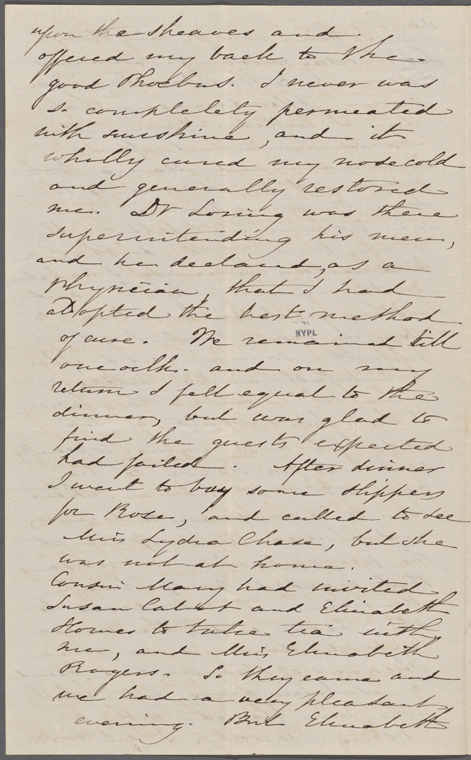 upon the sheaves and
offered my back to the
good Phoebus. I never was
so completely permeated
with sunshine, and it
wholly cured my nose cold
and generally restored
me. Dr Loring was there
superintending his men,
and he declared, as a
physician, that I had
adopted the best method
of cure. We remained till
NYPL
one oclk. and on my
return I felt equal to the
dinner, but was glad to
find the guests expected
had failed. After dinner
I went to buy some slippers
for Rose, and called to see
Miss Lydia Chase, but she
was not at home.
Cousin Mary had invited
Susan Cabot and Elizabeth
Howes to take tea with
me, and Miss Elizabeth
Rogers. So they came and
we had a very pleasant
evening. But Elizabeth